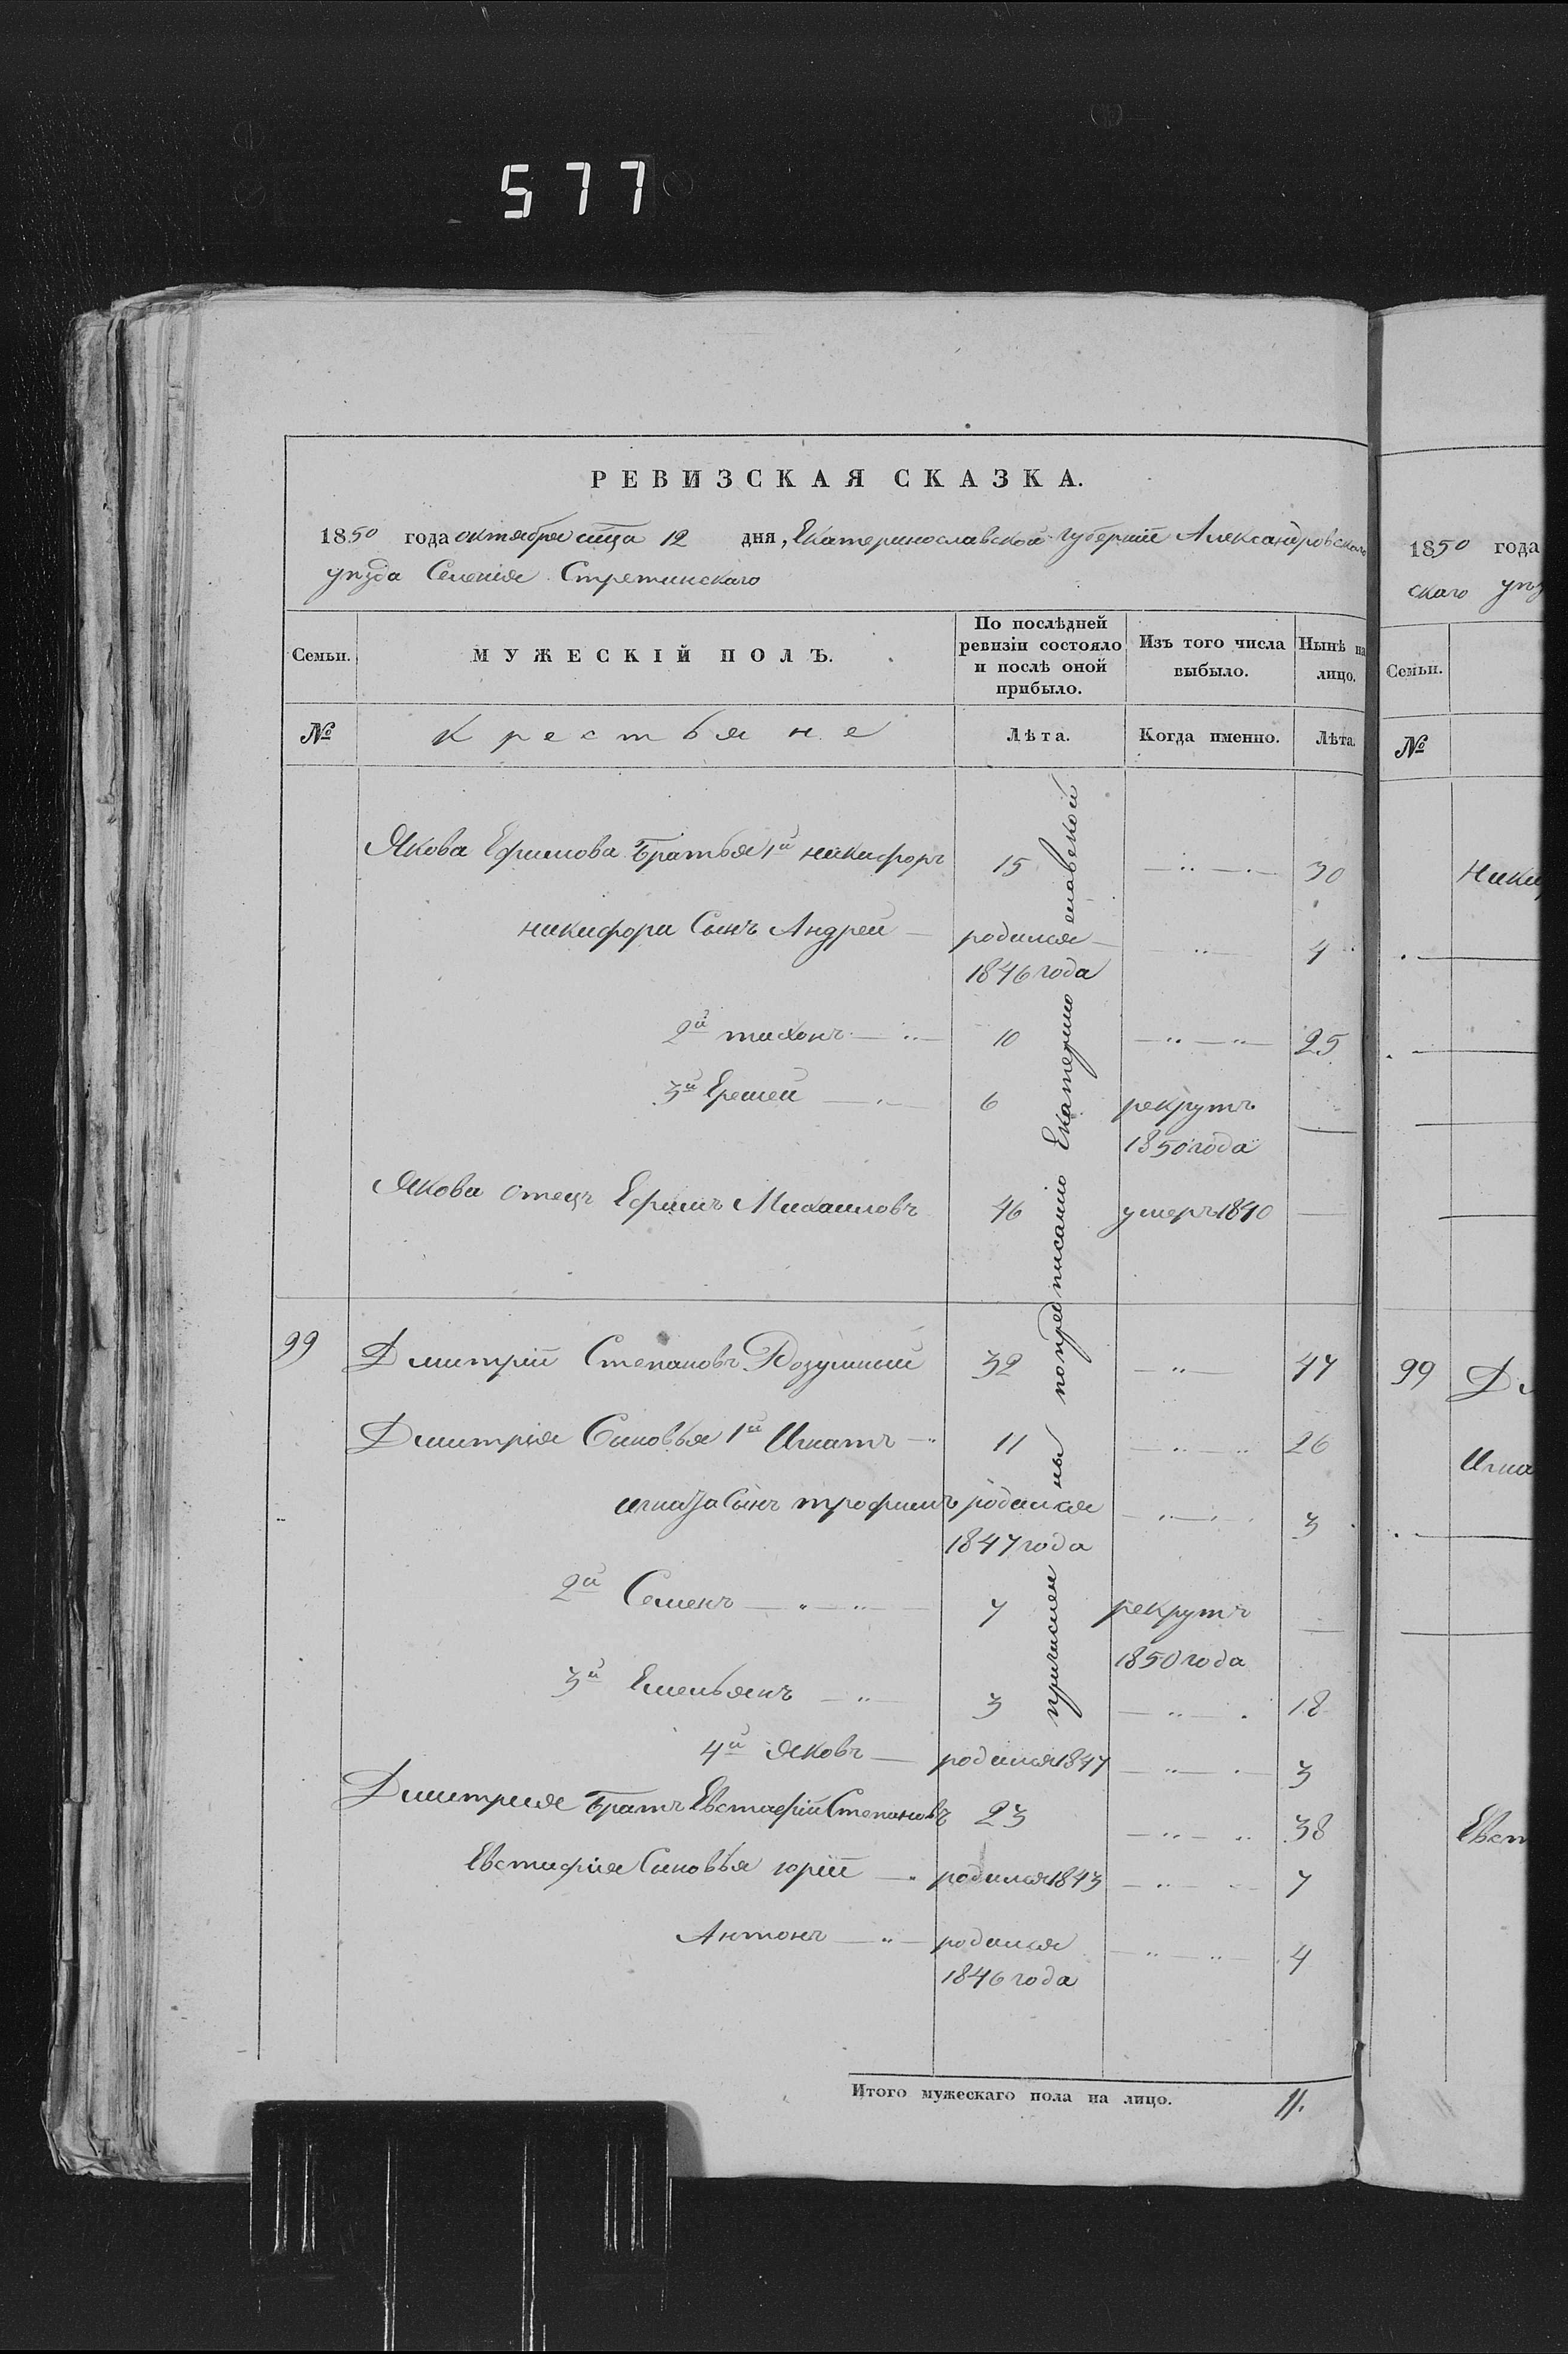 577
РЕВИЗСКАЯ СКАЗКА.
1850 года октября мца 12 дня, Екатеринославской губерніи Александровскаго
уезда Селенія Стретинскаго
Семьи. МУЖЕСКІЙ ПОЛЪ. По послѣдней ревизіи состояло и послѣ оной прибыло. Изъ того числа выбыло. Нынѣ на лицо.
№ Крестьяне Лѣта. Когда именно. Лѣта.
Якова Ефимова Братья 1й никифоръ 15 30
никифора Сынъ Андрей родился 4
1846 года
2й тихонъ 10 25
3й Еремей 6 рекрутъ
1850 года
Якова Отецъ Ефимъ Михаиловъ 46 умеръ 1840
99 Дмитрій Степановъ Розумный 32 47
Дмитрія Сыновья 1й Игнатъ 11 26
игната Сынъ трофимъ родился 3
1847 года
2й Семенъ 7 рекрутъ
1850 года
3й Емельянъ 3 18
4й Яковъ родился 1847 3
Дмитрия Братъ Евстафій Степановъ 23 38
Евстафія Сыновья юрій родился 1843 7
Антонъ родился 4
1846 года
причислены по предписанію Екатеринославской
Итого мужескаго пола на лицо. 11.
1850 года
скаго уез
Семьи.
№
Ники
99 Дм
Игна
Евст